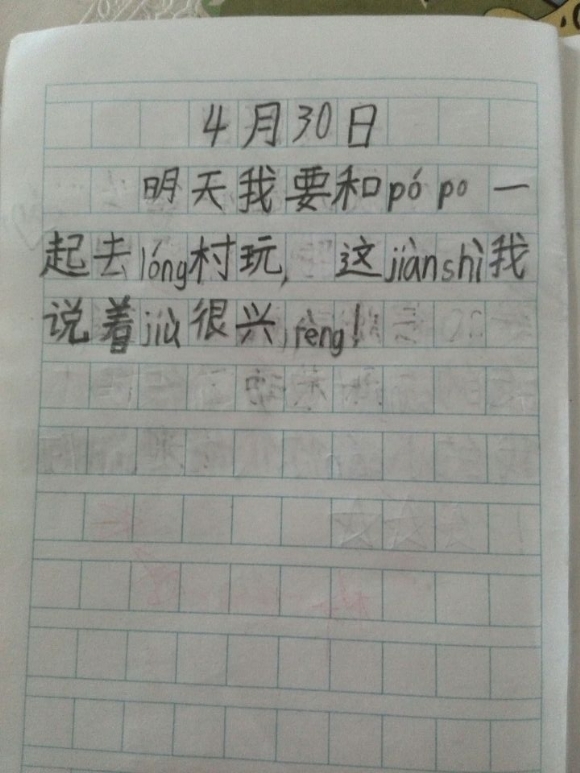 4月30日
明天我要和pópo一
起去lóng村玩,这jiànshì我
说着jiù很兴fèng!